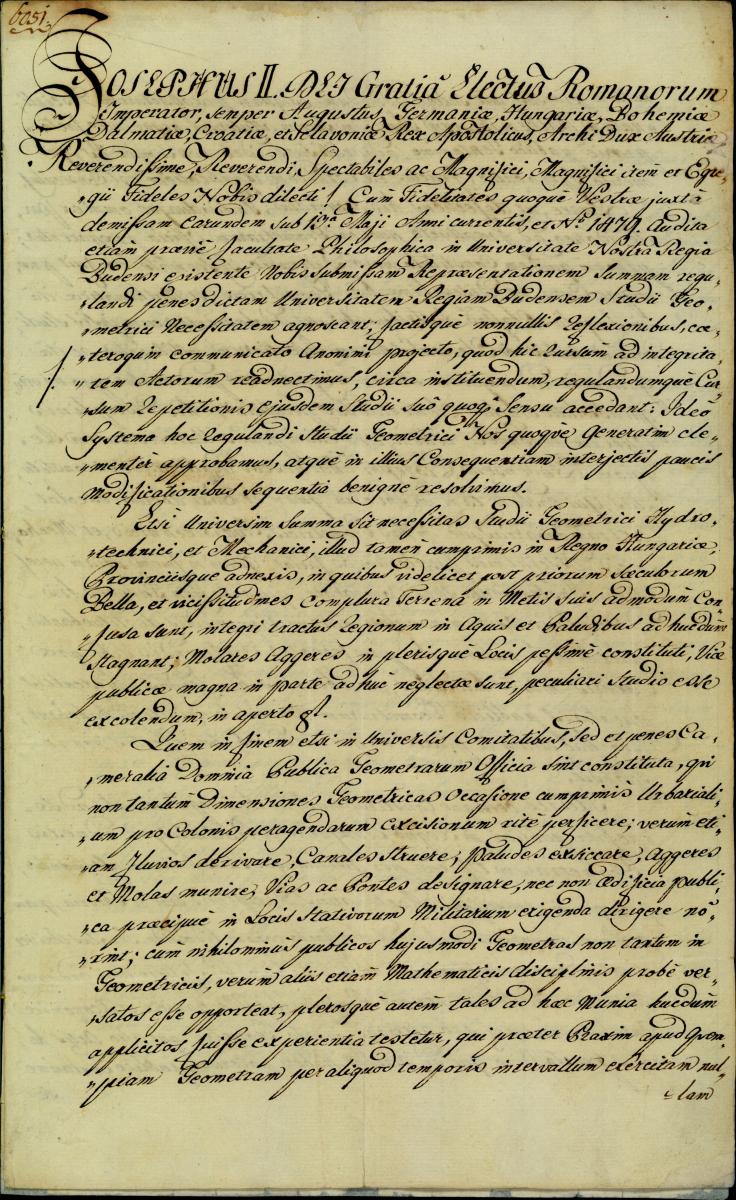 6051.
JOSEPHUS II. DEI Gratiâ Electus Romanorum
Imperator, semper Augustus, Germaniæ, Hungariæ, Bohemiæ
Dalmatiæ, Croatiæ, et Sclavoniæ Rex Apostolicus, Archi Dux Austriæ
Reverendissime, Reverendi, Spectabiles ac Magnifici, Magnifici item et Egre„
„gii Fideles Nobis dilecti! Cum Fidelitates quoquè Vestræ juxtà
demissam earundem sub 13a Maji Anni currentis, et No 1479. Audita
etiam præviè facultate Philosophica in Universitate Nostra Regia
Budensi existente Nobis submissam Repræsentationem Summam regu„
„landi penes dictam Universitatem Regiam Budensem Studii Geo„
„metrici Necessitatem agnoscant; factisquè nonnullis Reflexionibus, cæ„
„teroquin communicato Anonimi projecto, quod hic rursum ad integrita„
„tem Actorum readnectimus, circa instituendum, regulandumquè Cur„
„sum Repetitionis Ejusdem Studii suô quoq; Sensu accedant: Ideò
Systema hoc regulandi Studii Geometrici Nos quoquè Generatim cle„
„mentèr approbamus, atquè in illius Consequentiam interjectis paucis
modificationibus sequentia benignè resolvimus.
Etsi Universim Summa sit necessitas Studii Geometrici Hydro„
„technici, et Mechanici, illud tamèn cumprimis in Regno Hungariæ,
Provinciisque adnexis, in quibus videlicet post priorum sæculorum
Bella, et vicissitudines complura Terrena in Metis suis admodùm Con„
„fusa sunt, integri tractus Regionum in Aquis et Paludibus ad hucdùm
stagnant; Molares Aggeres in plerisquè Locis pessimè constituti, Viæ
publicæ magna in parte ad hùc neglectæ sunt, peculiari Studio esse
excolendum, in aperto est.
Quem in finem etsi in Universis Comitatibus, sed et penes Ca„
„meralia Dominia Publica Geometrarum Officia sint constituta, qui
non tantùm Dimensiones Geometricas Occasione cumprimis Urbariali„
„um pro Colonis peragendarum excisionum ritè perficere; verùm eti„
„am Fluvios derivare, Canales struere, paludes exsiccare, Aggeres
et Molas munire, Vias ac Pontes designare, nec non Ædificia publi„
„ca præcipuè in Locis Stativorum Militarium erigenda dirigere nô„
„rint; cum nihilominùs publicos hujusmodi Geometras non tantum in
Geometricis, verùm aliis etiam Mathematicis disciplinis probè ver„
„satos esse opporteat, plerosquè autem tales ad hæc Munia hucdùm
applicitos fuisse experientia testetur, qui præter Praxim apud Quem„
„piam Geometram per aliquod temporis intervallum exercitam nul„
„lam